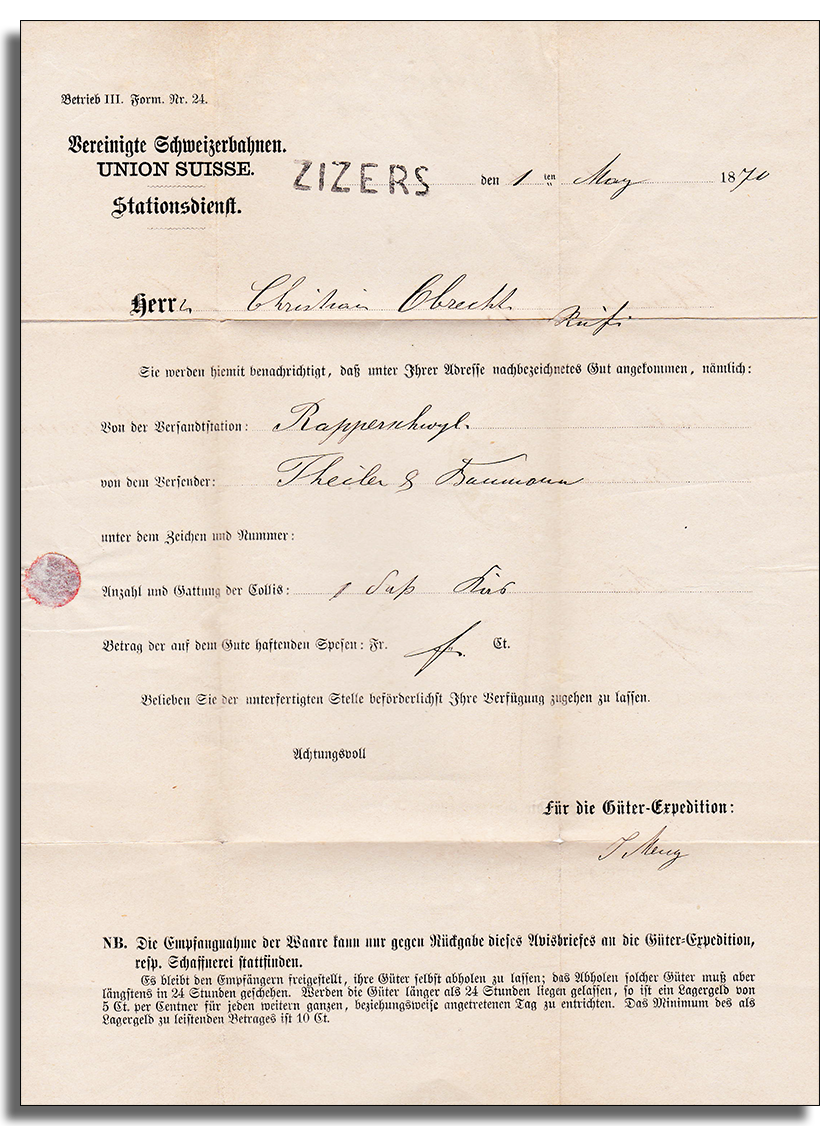 Betrieb III. Form. Nr. 24.
Vereinigte Schweizerbahnen.
UNION SUISSE.
Stationsdienst.
ZIZERS den 1 ten May 1870
Herrn Christian Obrecht
Rüfi
Sie werden hiemit benachrichtigt, daß unter Ihrer Adresse nachbezeichnetes Gut angekommen, nämlich:
Von der Versandtstation: Rapperschwyl.
von dem Versender: Theiler & Baumann
unter dem Zeichen und Nummer:
Anzahl und Gattung der Collis: 1 Faß
Betrag der auf dem Gute haftenden Spesen: Fr. Ct.
Belieben Sie der unterfertigten Stelle beförderlichst Ihre Verfügung zugehen zu lassen.
Achtungsvoll
Für die Güter-Expedition:
J Meng
NB. Die Empfangnahme der Waare kann nur gegen Rückgabe dieses Avisbriefes an die Güter-Expedition,
resp. Schaffnerei stattfinden.
Es bleibt den Empfängern freigestellt, ihre Güter selbst abholen zu lassen; das Abholen solcher Güter muß aber
längstens in 24 Stunden geschehen. Werden die Güter länger als 24 Stunden liegen gelassen, so ist ein Lagergeld von
5 Ct. per Centner für jeden weitern ganzen, beziehungsweise angetretenen Tag zu entrichten. Das Minimum des als
Lagergeld zu leistenden Betrages ist 10 Ct.